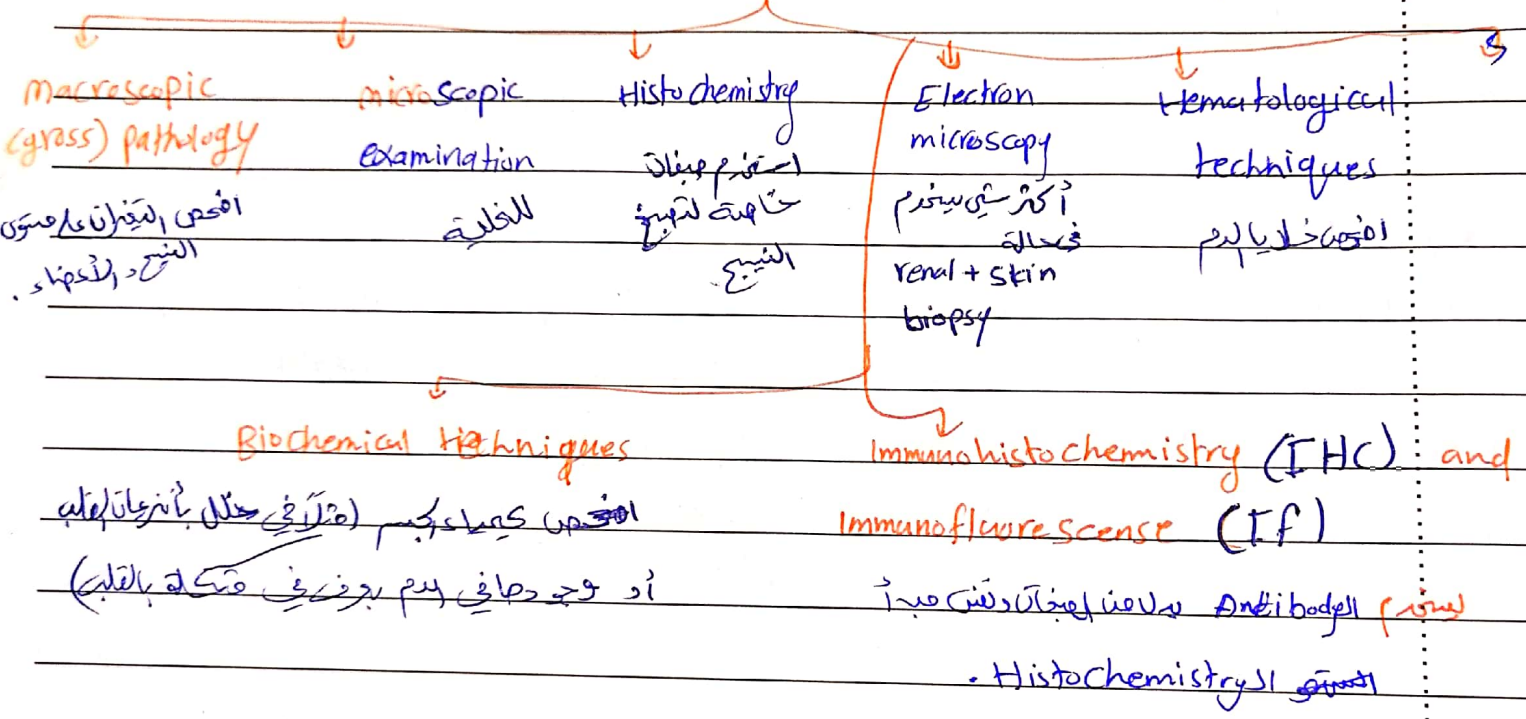 macroscopic
(gross) pathology
افحص التغيرات على مستوى
النسيج والأعضاء.
microscopic
examination
للخلية
Histochemistry
استخدم صبغات
خاصة لتصبيغ
النسيج.
Electron
microscopy
أكثر شي يستخدم
في حالة
renal + skin
biopsy
Hematological
techniques
افحص خلايا الدم
5
Biochemical techniques
افحص كيمياء الجسم (مثلاً في خلل بأنزيمات القلب
أو وجودها في الدم بعرف في مشكلة بالقلب)
Immunohistochemistry (IHC) and
Immunofluorescense (If)
بستخدم الـ Antibody بدلا من الصبغات ونفس مبدأ
الـ Histochemistry.